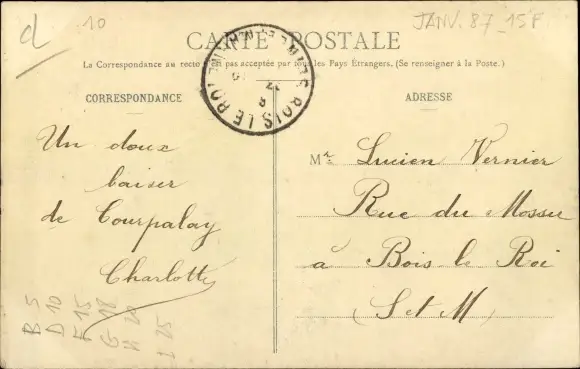 d
10
JANV. 87 15F
CARTE POSTALE
La Correspondance au recto n'est pas acceptée par tous les Pays Étrangers. (Se renseigner à la Poste.)
BOIS LE ROI
CORRESPONDANCE
ADRESSE
Un doux
baiser
de Courpalay
Charlotte
M Lucien Vernier
Rue du
à Bois le Roi
(S et M)
B 5
D 10
F 15
G 18
H 20
I 25